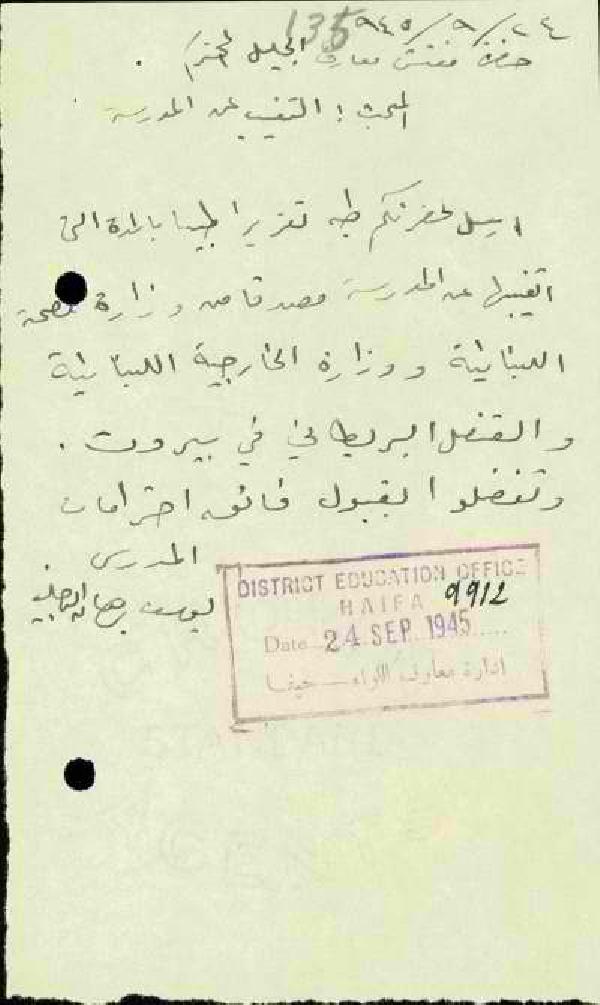 135
٩٤٥/٩/٢٤
حضرة مفتش معارف الجليل المحترم .
المبحث : التغيب عن المدرسة
ارسل لحضرتكم طيه تقريرا طبيا بالمدة التي
اتغيبها عن المدرسة مصدقا من وزارة الصحة
اللبنانية ووزارة الخارجية اللبنانية
والقنصل البريطاني في بيروت .
وتفضلوا بقبول فائق احترامات
المدرس .
يوسف
DISTRICT EDUCATION OFFICE
HAIFA 9912
Date 24 SEP. 1945
ادارة معارف اللواء - حيفا